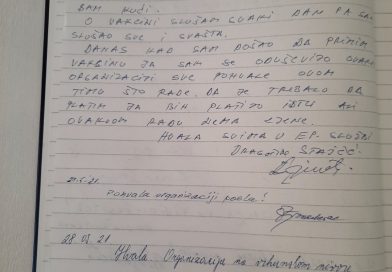 DAM KUĆI.
O VAKCINI SLUŠAM SVAKI DAN PA SAM
SLUŠAO SVE I SVAŠTA.
DANAS KAD SAM DOŠAO DA PRIMIM
VAKCINU JA SAM SE ODUŠEVIO OVAKO
ORGANIZACIJI SVE POHVALE OVOM
TIMU ŠTO RADE. DA JE TREBALO DA
PLATIM JA BIH PLATIO ISTU ALI
OVAKVOM RADU NEMA CJENE.
HVALA SVIMA U EP. SLUŽBI
DRAGOTIN STAJČIĆ
Pohvala organizaciji posla!
28.05.21
Hvala. Organizacija na vrhunskom nivou